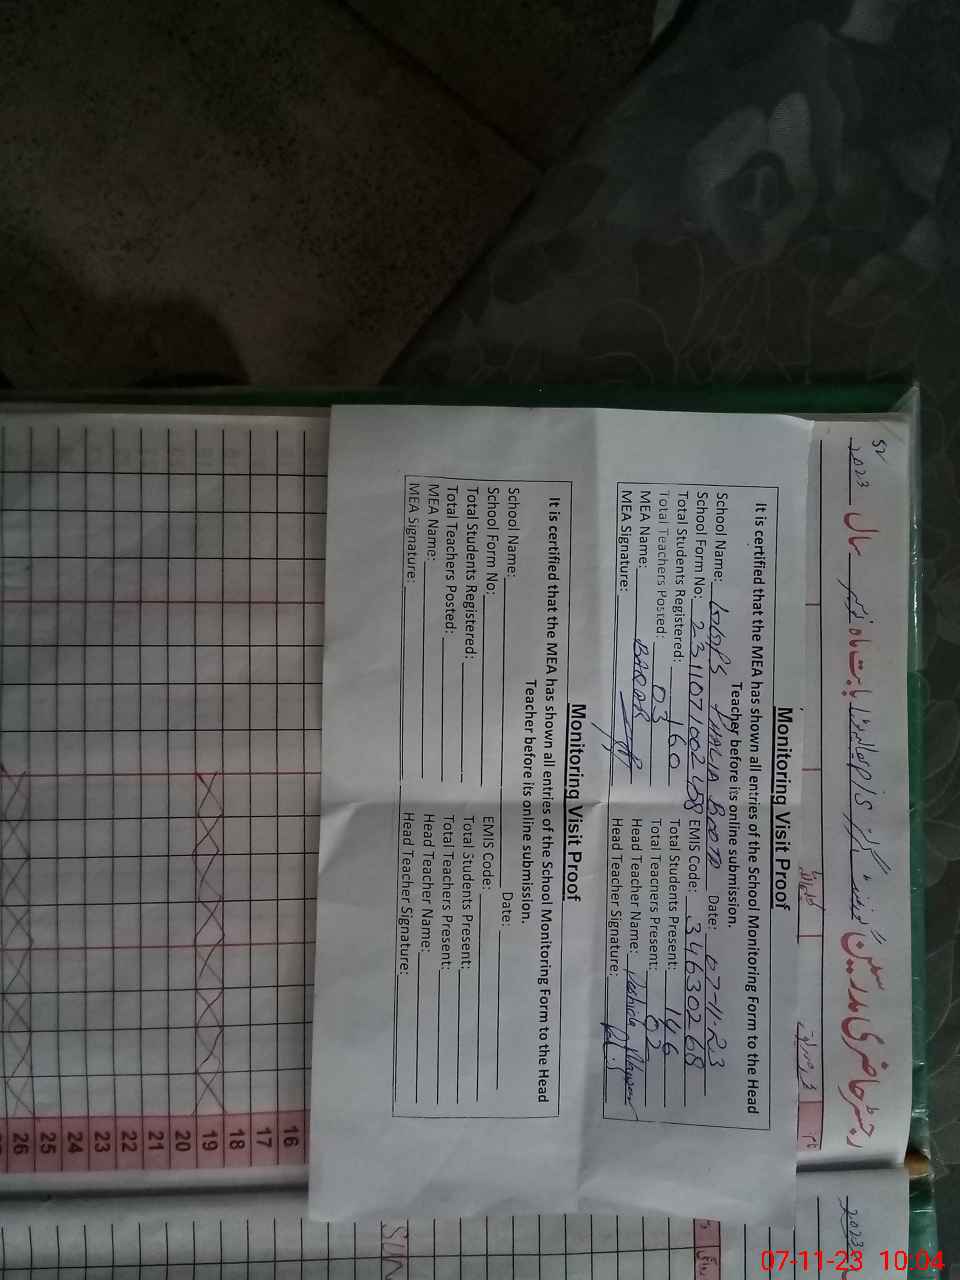 Monitoring Visit Proof
It is certified that the MEA has shown all entries of the School Monitoring Form to the Head
Teacher before its online submission.
School Name: PHALIA BOOTA Date: 07-11-23
School Form No: EMIS Code: 34630268
Total Students Registered: 160 Total Students Present: 146
Total Teachers Posted: 03 Total Teachers Present: 02
MEA Name: Head Teacher Name:
MEA Signature: Head Teacher Signature:
Monitoring Visit Proof
It is certified that the MEA has shown all entries of the School Monitoring Form to the Head
Teacher before its online submission.
School Name: Date:
School Form No: EMIS Code:
Total Students Registered: Total Students Present:
Total Teachers Posted: Total Teachers Present:
MEA Name: Head Teacher Name:
MEA Signature: Head Teacher Signature:
16
17
18
19
20
21
22
23
24
25
26
2023
2023
SUN
07-11-23 10:04